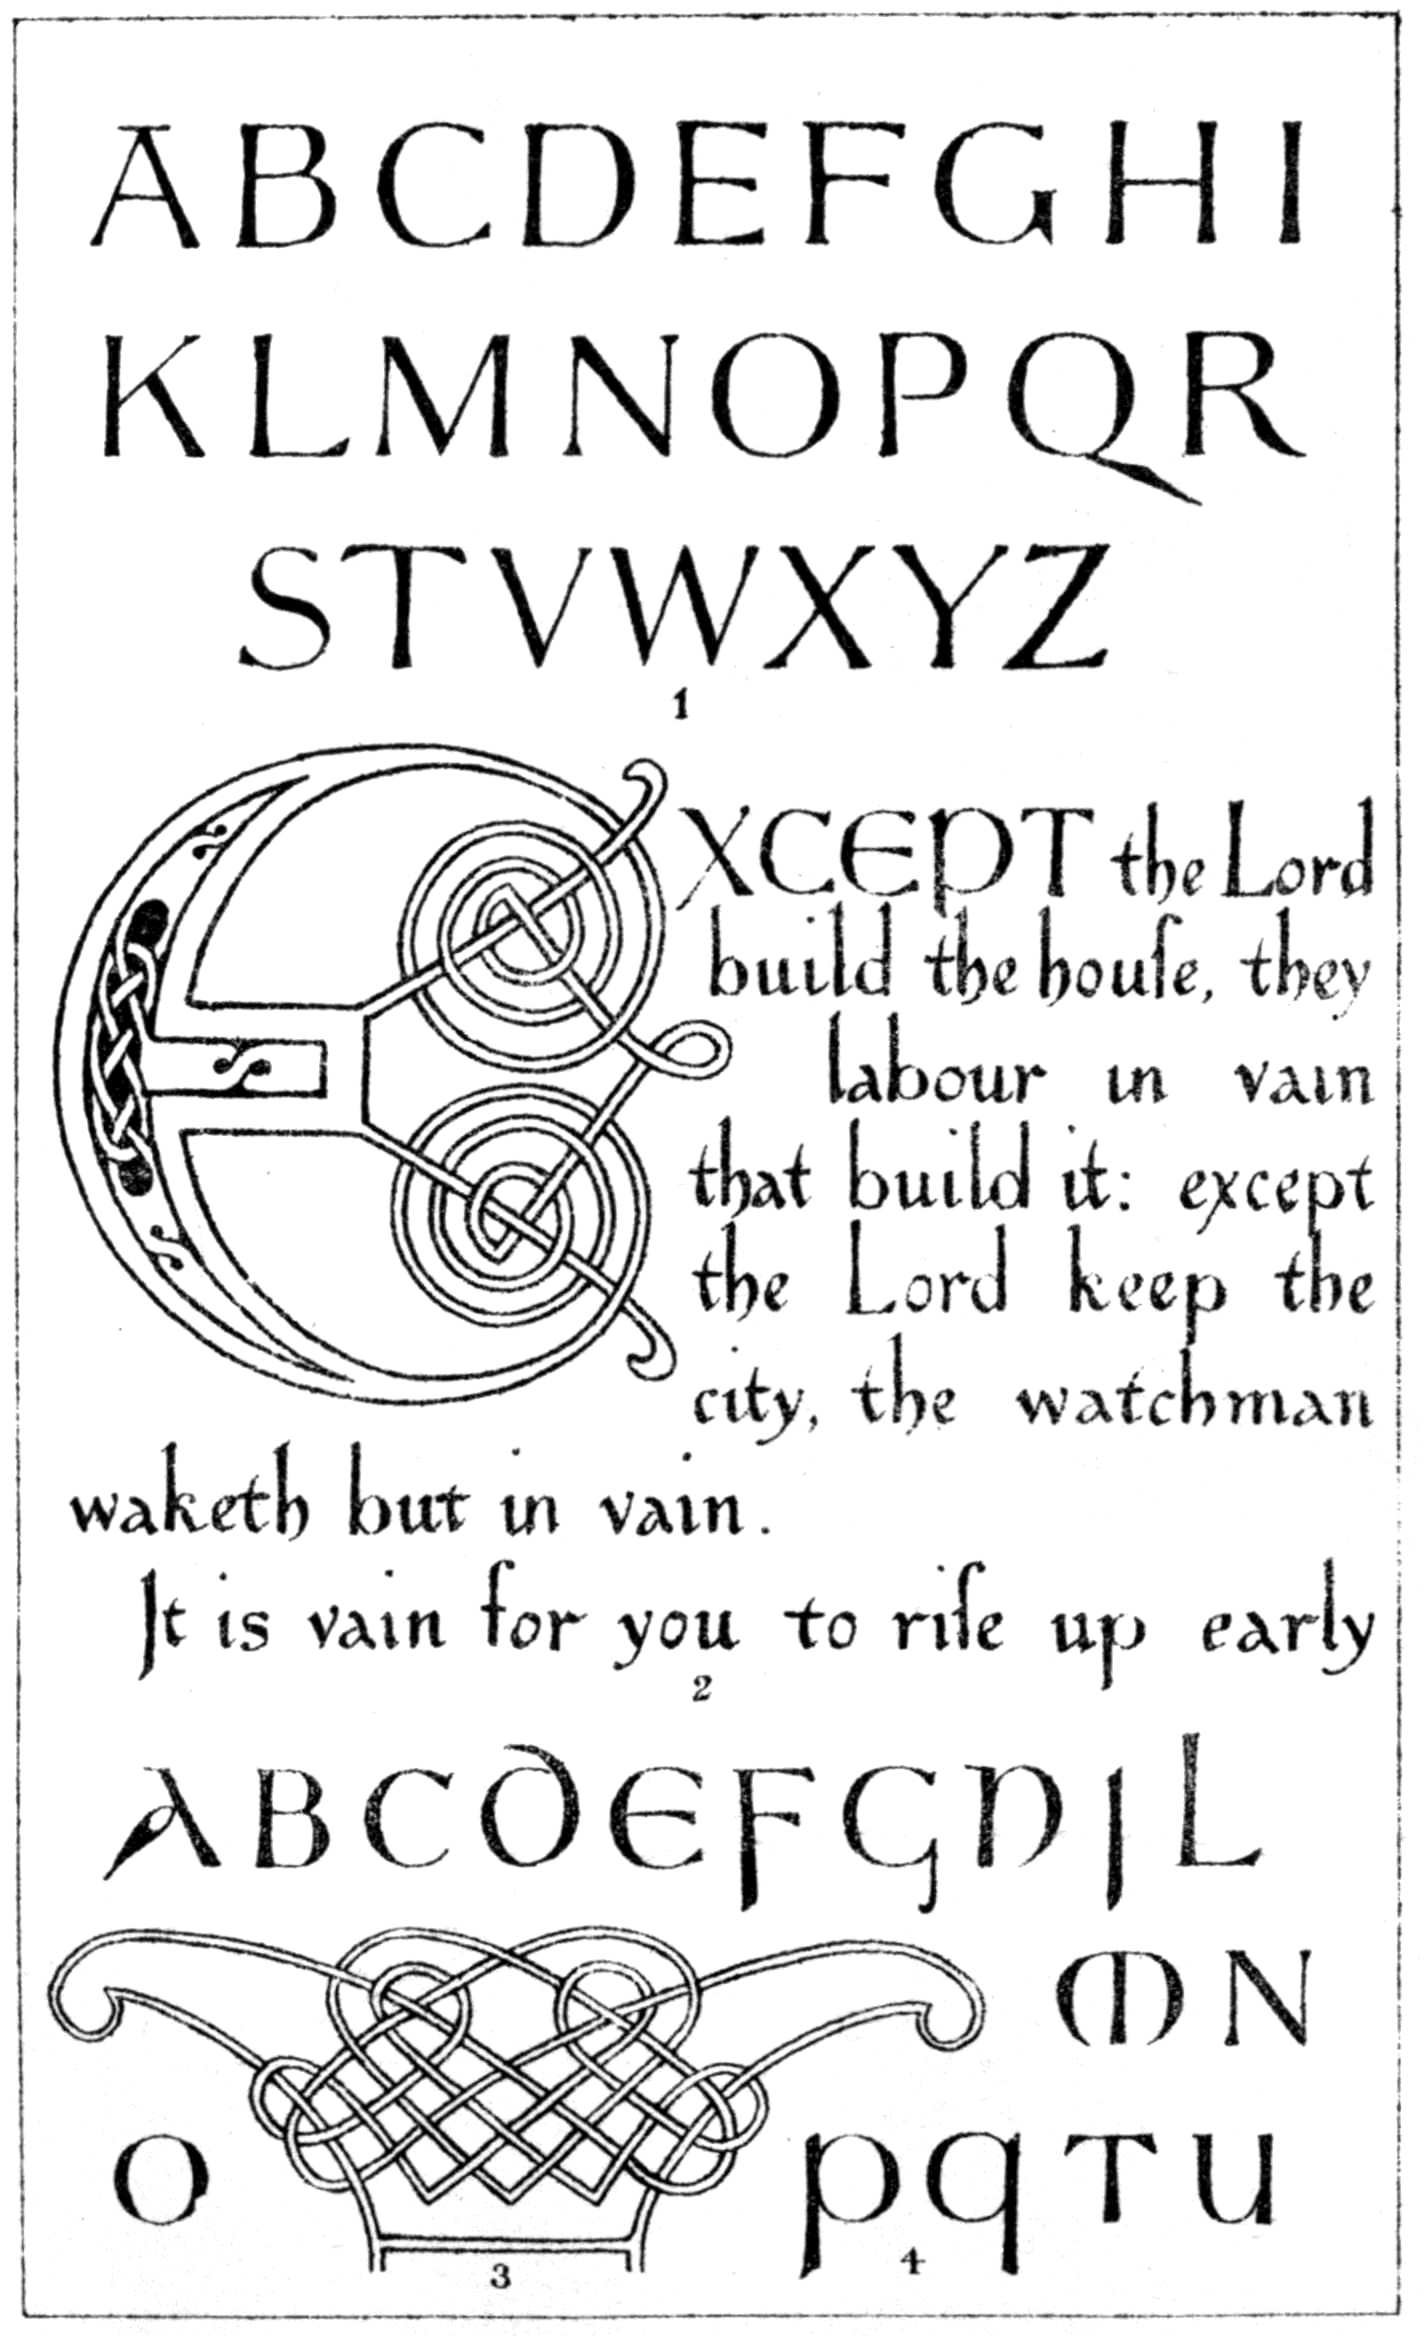 ABCDEFGHI
KLMNOPQR
STVWXYZ
1
EXCEPT the Lord
build the houſe, they
labour in vain
that build it: except
the Lord keep the
city, the watchman
waketh but in vain.
It is vain for you to riſe up early
2
ABCDEFGHIL
MN
O pqTU
3 4